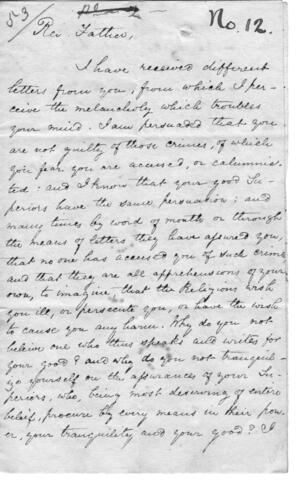 No. 12.
Rev. Father,
I have received different
letters from you, from which I per-
ceive the melancholy which troubles
your mind. I am persuaded that you
are not guilty of those crimes, of which
you fear you are accused, or calumnia-
ted: and I know that your good Su-
periors have the same persuasion: and
many times by word of mouth or through
the means of letters they have assured you,
that no one has accused you of such crimes
and that they are all apprehensions of your
own, to imagine, that the Religious wish
you ill, or persecute you, or have the wish
to cause you any harm. Why do you not
beleive one who thus speaks and writes for
your good? and why do you not tranquil-
ize yourself on the assurances of your Su-
periors, who, being most deserving of entire
beleif, procure by every means in their pow-
er, your tranquility and your good? I